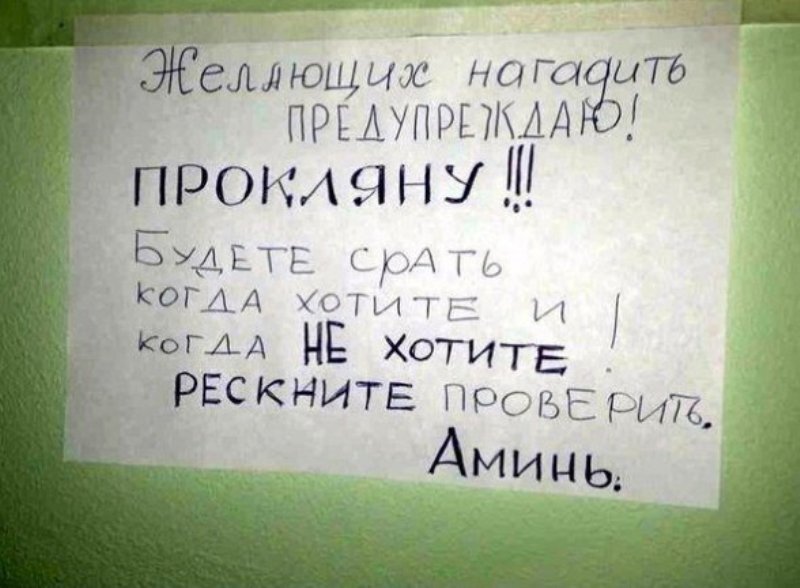 Желяющих нагадить
ПРЕДУПРЕЖДАЮ!
ПРОКЛЯНУ!!!
БУДЕТЕ СРАТЬ
КОГДА ХОТИТЕ И
КОГДА НЕ ХОТИТЕ!
РЕСКНИТЕ ПРОВЕРИТЬ.
Аминь.